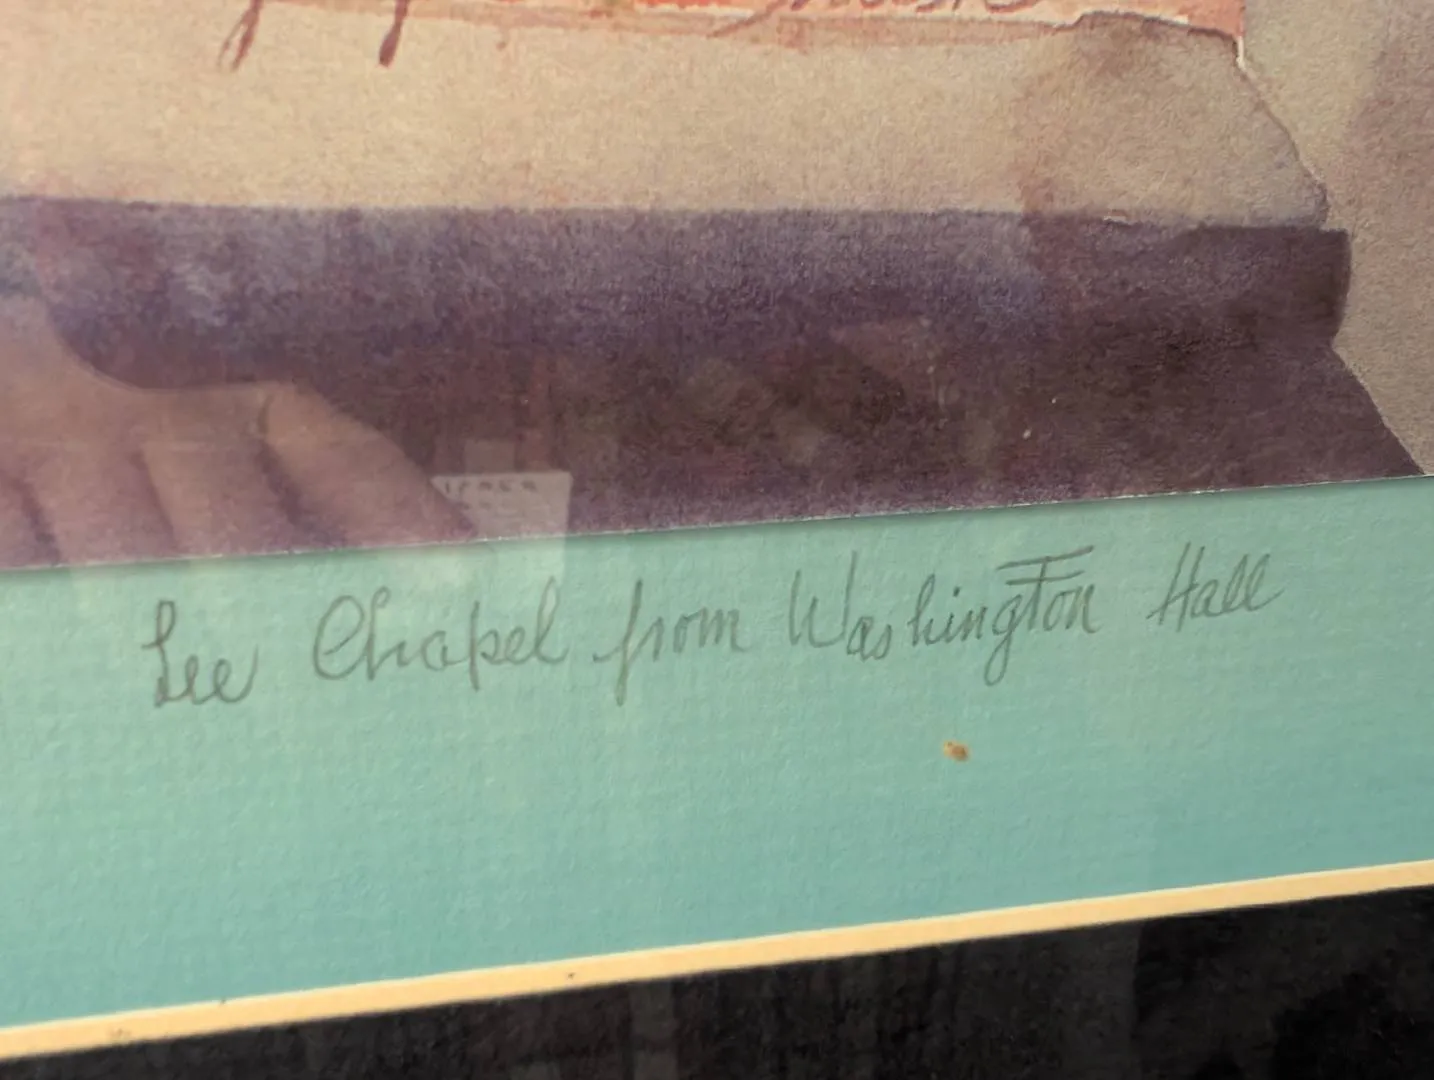 Lee Chapel from Washington Hall